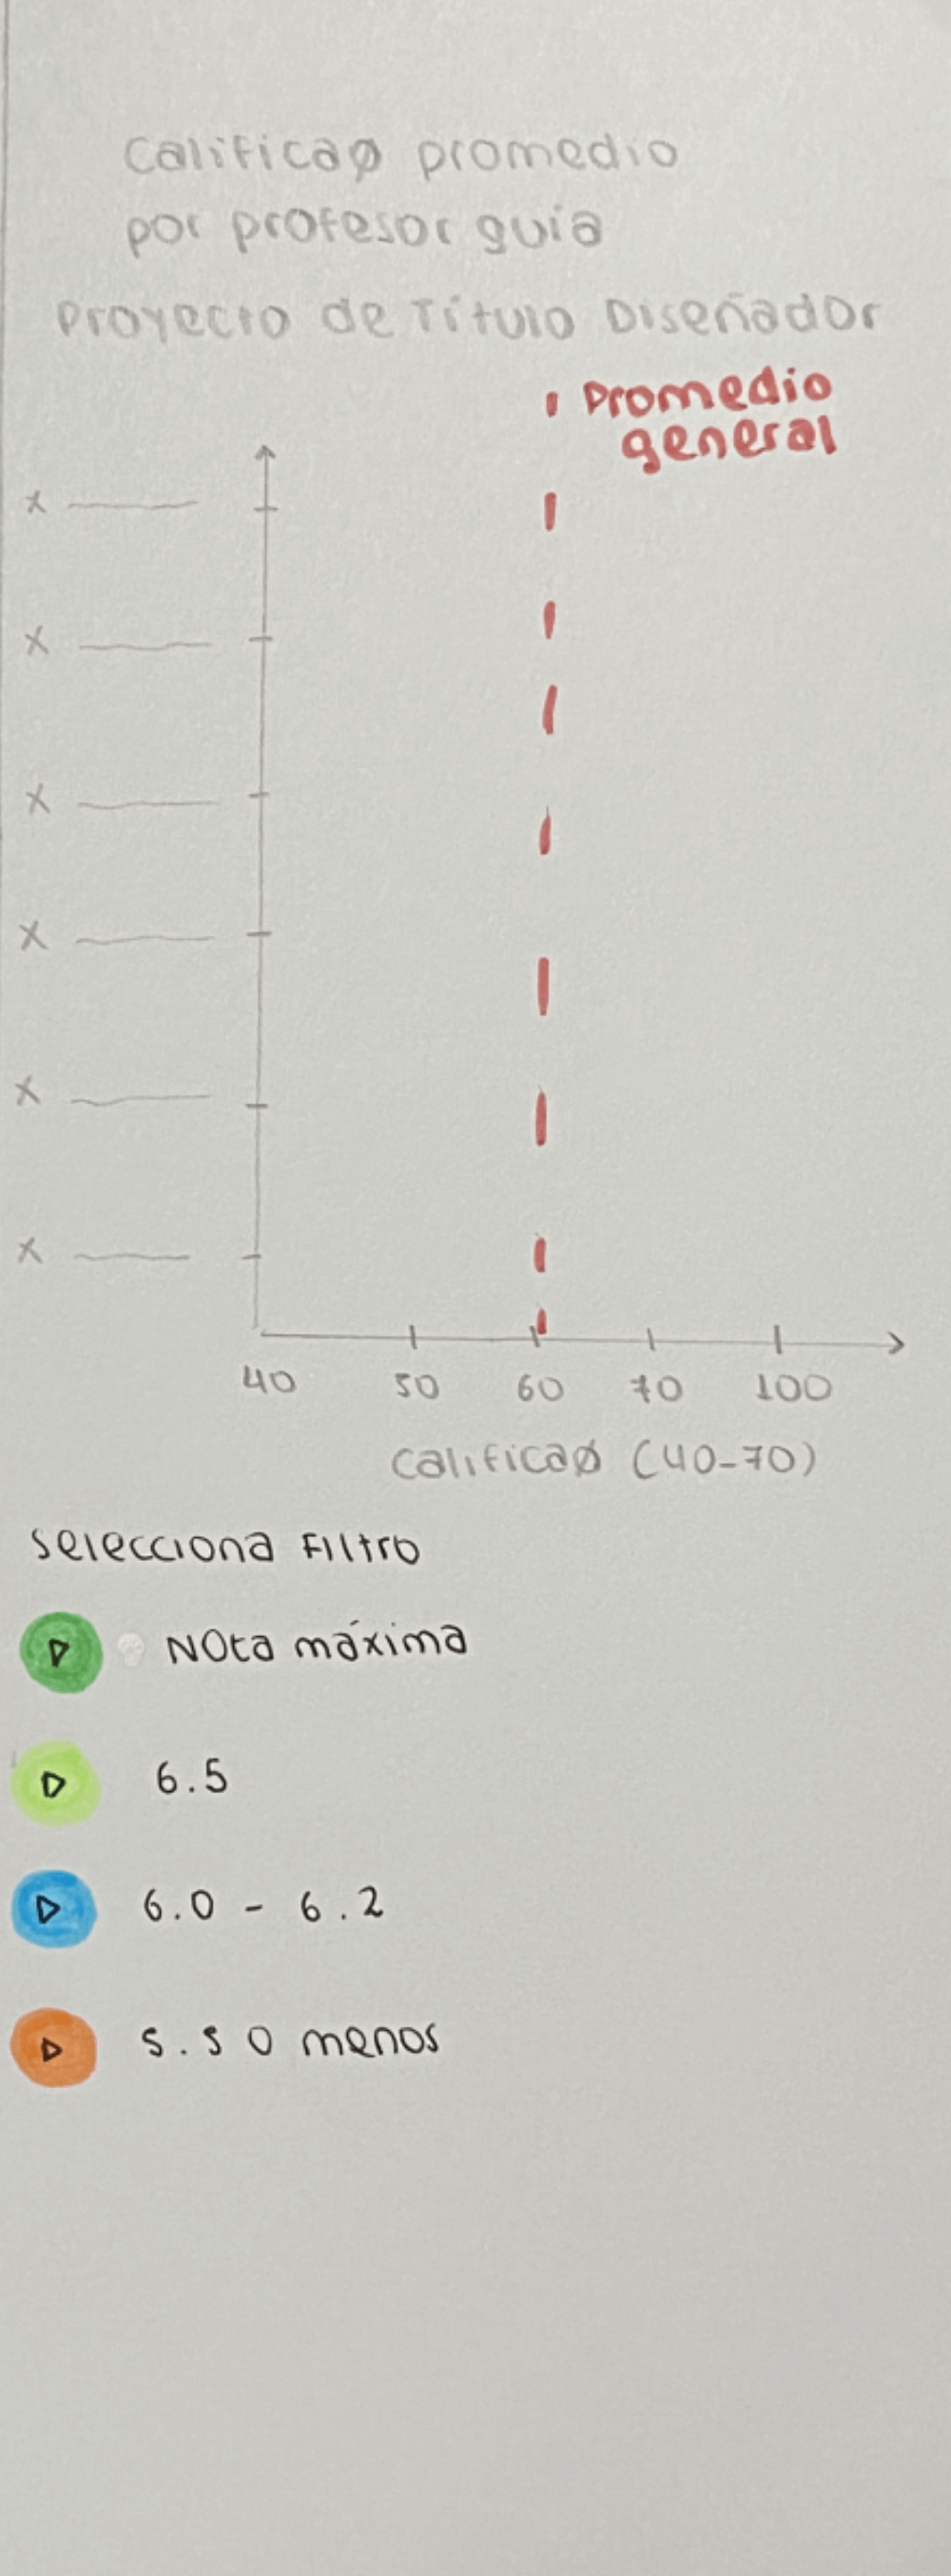 Calificaø promedio
por profesor guía
Proyecto de Título Diseñador
Promedio
general
x
x
x
x
x
x
40 50 60 70 100
Calificaø (40-70)
Selecciona Filtro
Nota máxima
6.5
6.0 - 6.2
5.5 o menos